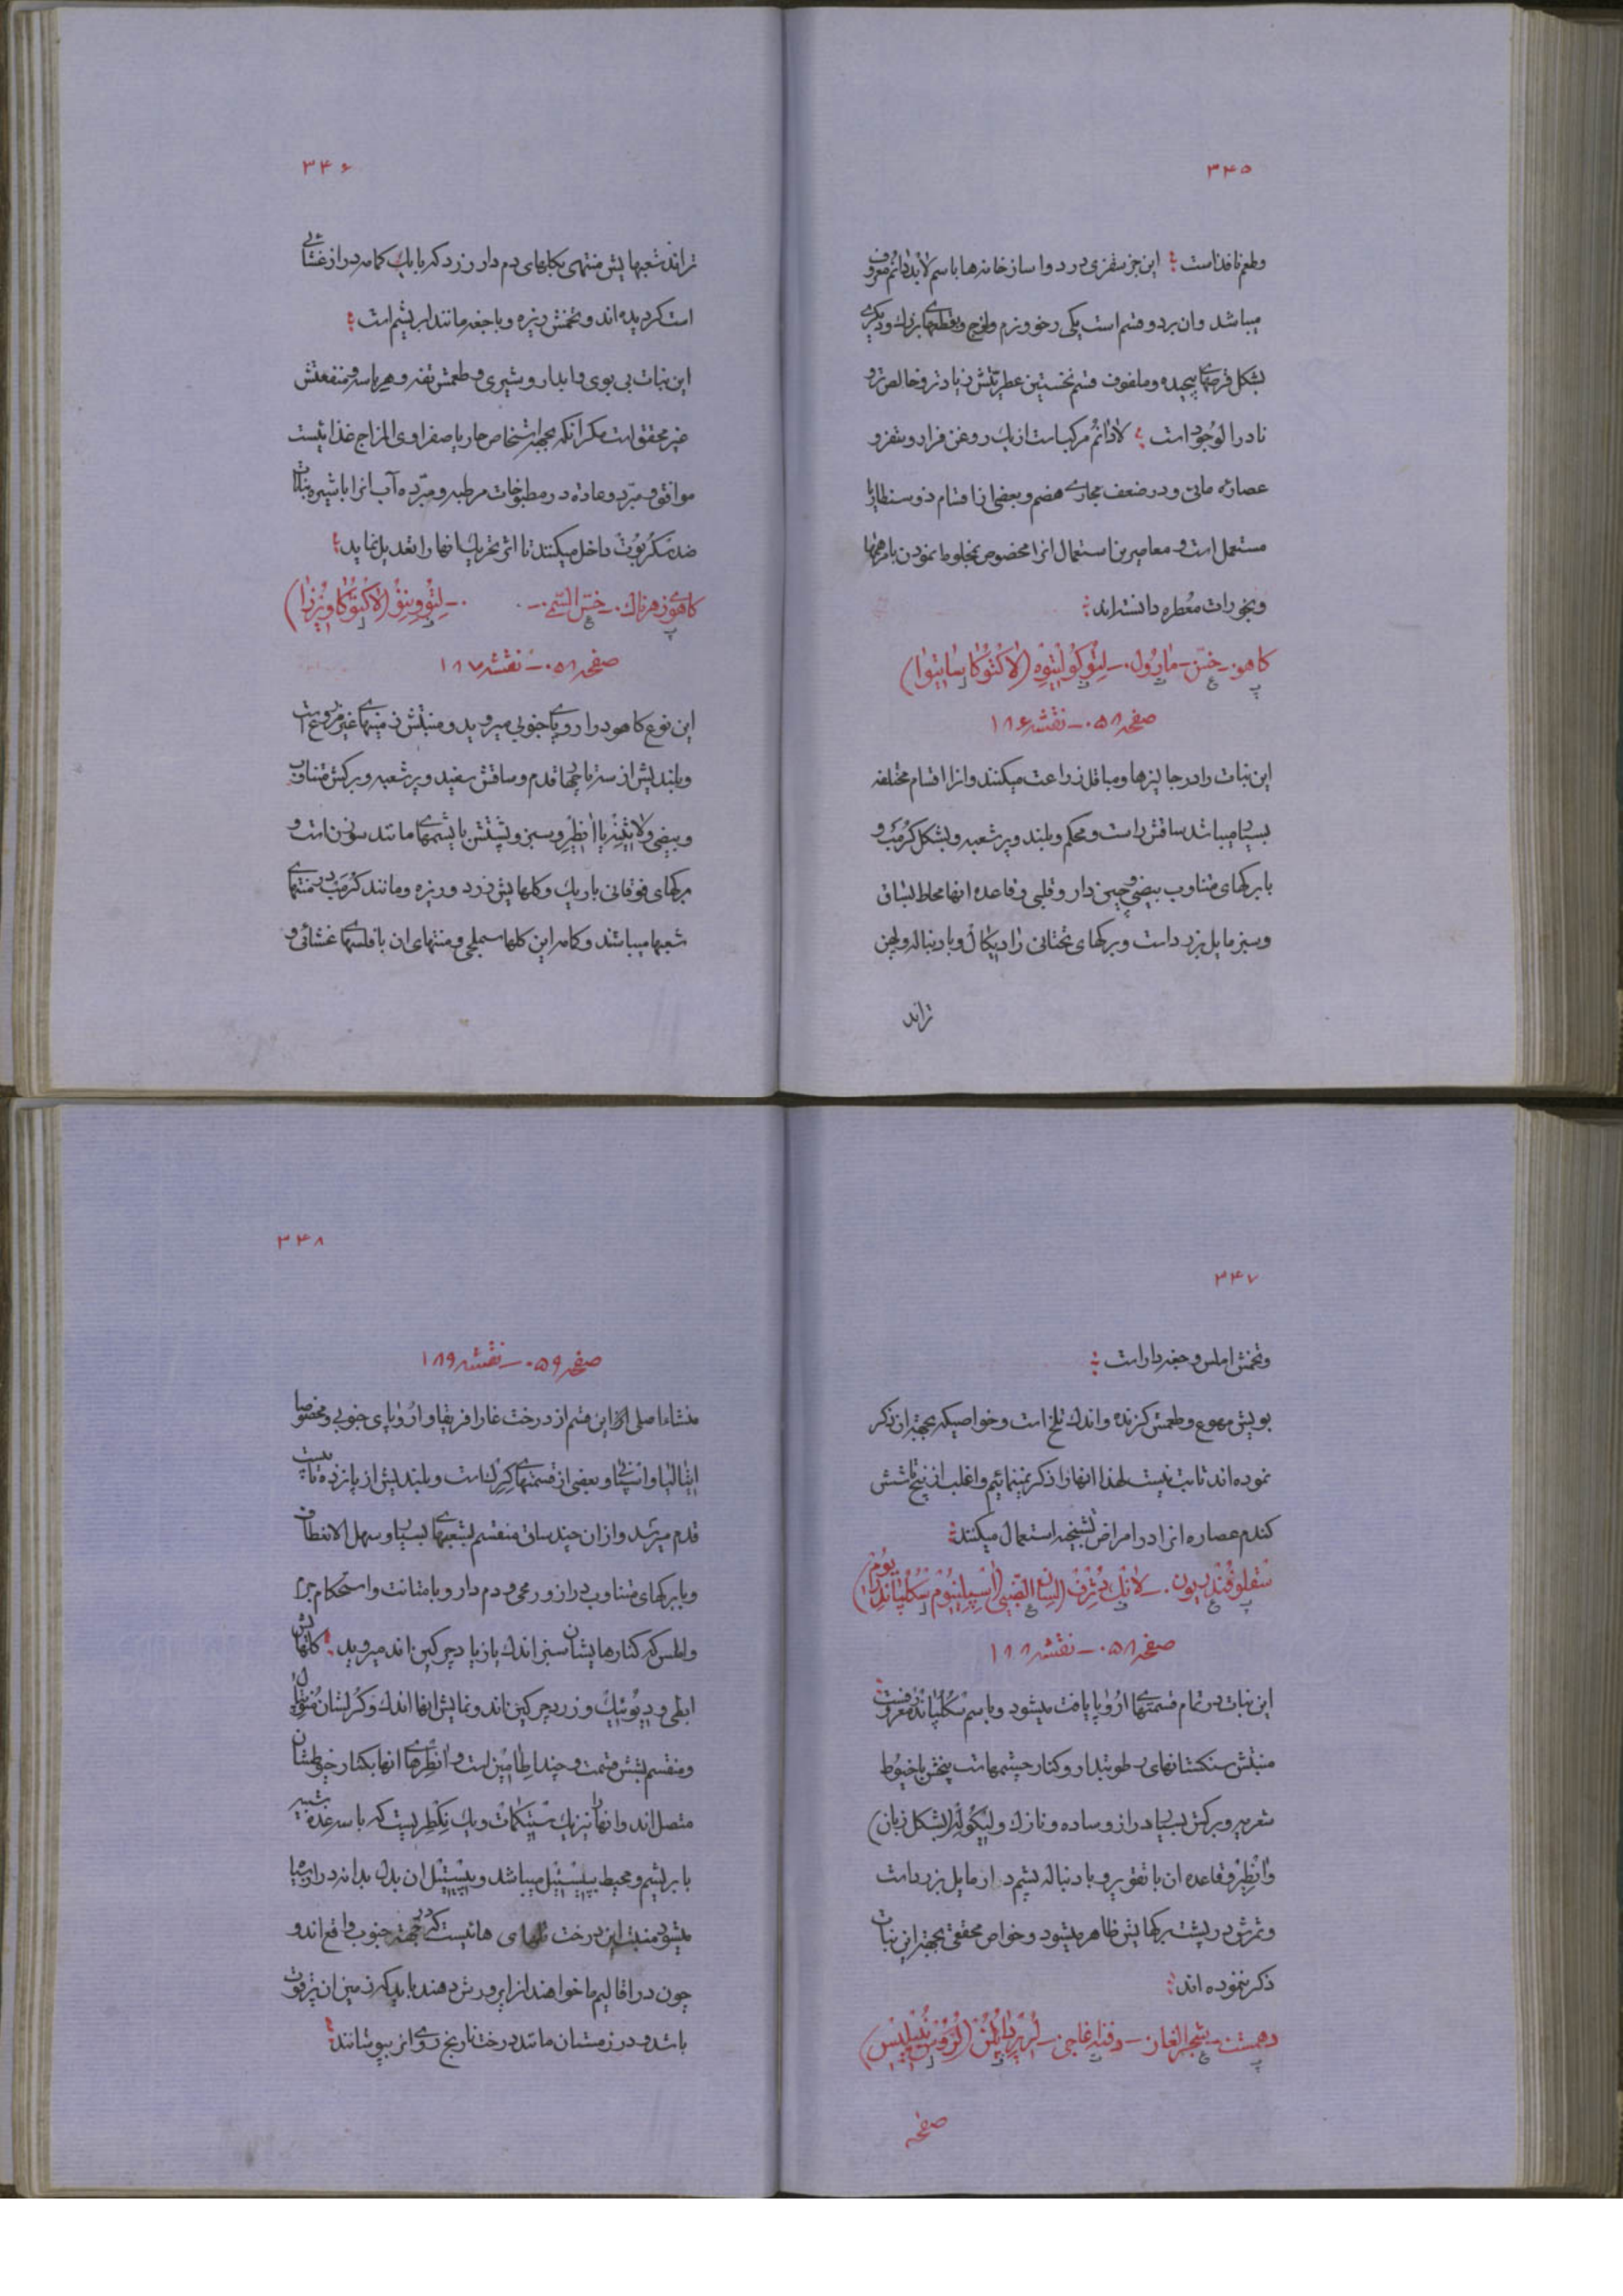 ۳۴۵
وطعم نافذ است؛ این جز سقزی در دواسازخانه‌ها باسم لابدانم معروف
میباشد وان بر دو قسم است یکی رخو و نرم ولزج وبقطعهای بزرک ودیکری
بشکل قرصهای پیچیده وملفوف قسم نخستین عطریتش زیادتر وخالص‌تر و
نادر الوجود است؛ لادانم مرکب است از یك روغن فرار وسقز و
عصاره مائی ودر ضعف مجاری هضم وبعضی از اقسام ذوسنطاریا
مستعمل است و معاصرین استعمال انرا مخصوص بمخلوط نمودن با مرهمها
وبخورات معطره دانسته‌اند؛
کاهو - خس - مارول - لیتو کولتیوه (لاکتوکا ساتیوا)
صفحه ۵۸ - نقشه ۱۸۶
این نبات را در جالیزها ومباقل زراعت میکنند وانرا اقسام مختلفه
بسیار میباشد ساقش راست ومحکم وبلند وپر شعبه وبشکل کرمب و
با برکهای متناوب بیضی وچین دار وقلبی وقاعده انها محاط بساق
وسبز مایل بزرد است وبرکهای تحتانی رادیکال وبا دنباله وپهن
تراند
۳۴۶
تراند شعبهایش منتهی بکلهای دم دار زرد که با یك کاسه دراز غشائی
است کردیده‌اند وتخمش ریزه وبا جغه مانند ابریشم است؛
این نبات بی بوی وابدار وشیری وطعمش تفه وهرباسه ومنفعتش
غیر محقق است مکر انکه بجهة اشخاص حار یا صفراوی المزاج غذائیست
موافق ومبرد وعادة در مطبوخات مرطبه ومبرده آب انرا با شیره نباتات
ضد سکربوت داخل میکنند تا اثر تحریك انها را تعدیل نماید؛
کاهوی زهرناك - خس السمی - لیتو وینو (لاکتوکا ویرزا)
صفحه ۵۸ - نقشه ۱۸۷
این نوع کاهو در اروپای جنوبی میروید ومنبتش زمینهای غیر مزروع است
وبلندیش از سه تا چهار قدم وساقش سفید وپر شعبه وبرکش متناوب
وبیضی ولاثینه یا انطیر وسبز وپشتش با پشمهای مانند سوزن است و
برکهای فوقانی باریك وکلهایش زرد وریزه ومانند کرمب در منتهای
شعبها میباشند وکاسه این کلها سملجی ومنتهای ان با فلسهای غشائی و
۳۴۷
وتخمش املس وجغه دار است؛
بویش مهوع وطعمش کزنده واندك تلخ است وخواصیکه بجهة ان ذکر
نموده‌اند ثابت نیست لهذا انها را ذکر نمینمائیم واغلب از پنج تا شش
کندم عصاره انرا در امراض تشنجیه استعمال میکنند؛
سقلوقندریون - لانك دثرف (لسان الضبی) (اسپلینیوم سکلپاندریوم)
صفحه ۵۸ - نقشه ۱۸۸
این نبات در تمام قسمتهای اروپا یافت میشود وباسم سکلپاندر معروفست؛
منبتش سنکستانهای رطوبتدار وکنار چشمهاست بیخش با خیوط
شعریه وبرکش بسیار دراز وساده ونازك ولیکوله (بشکل زبان)
وانطیر وقاعده ان با تقویر وبا دنباله پشم دار مایل بزرد است
وثمرش در پشت برکهایش ظاهر میشود وخواص محققی بجهة این نبات
ذکر ننموده‌اند؛
دهمست - شجر الغار - دفنه اغاجی - لریر پایلن (لروس نبیلیس)
صفحه
۳۴۸
صفحه ۵۹ - نقشه ۱۸۹
منشاء اصلی این قسم از درخت غار افریقا واروپای جنوبی ومخصوصا
ایتالیا واسپانی وبعضی از قسمتهای کرك است وبلندیش از پانزده تا بیست
قدم میرسد وازان چند ساق منقسم بشعبهای بسیار وسهل الانعطاف
وبا برکهای متناوب دراز ورمحی ودم دار وبا متانت واستحکام جرم
واملس که کنارهایشان سبز اندك یا زیاد چرکین‌اند میروید؛ کلهایش
ابطی ودیوئیك وزرد چرکین‌اند ونمایش انها اندك وکرلشان منوپتال
ومنقسم بشش قسمت وچند اطامین است وانطرهای انها بکنار خیوطشان
متصل‌اند وانها را نیز یك ستیکمات ویك نکطریست که با سه غده شبیه
با بریشم ومحیط بپیستیل میباشد وپیستیل ان بدل بدانه دار سیاه
میشود منبت این درخت تلهای هائیست که در جهة جنوب واقع‌اند و
چون در اقالیم ما خواهند انرا پرورش دهند باید که زمین ان پرقوت
باشد ودر زمستان مانند درخت نارنج روی انرا بپوشانند؛